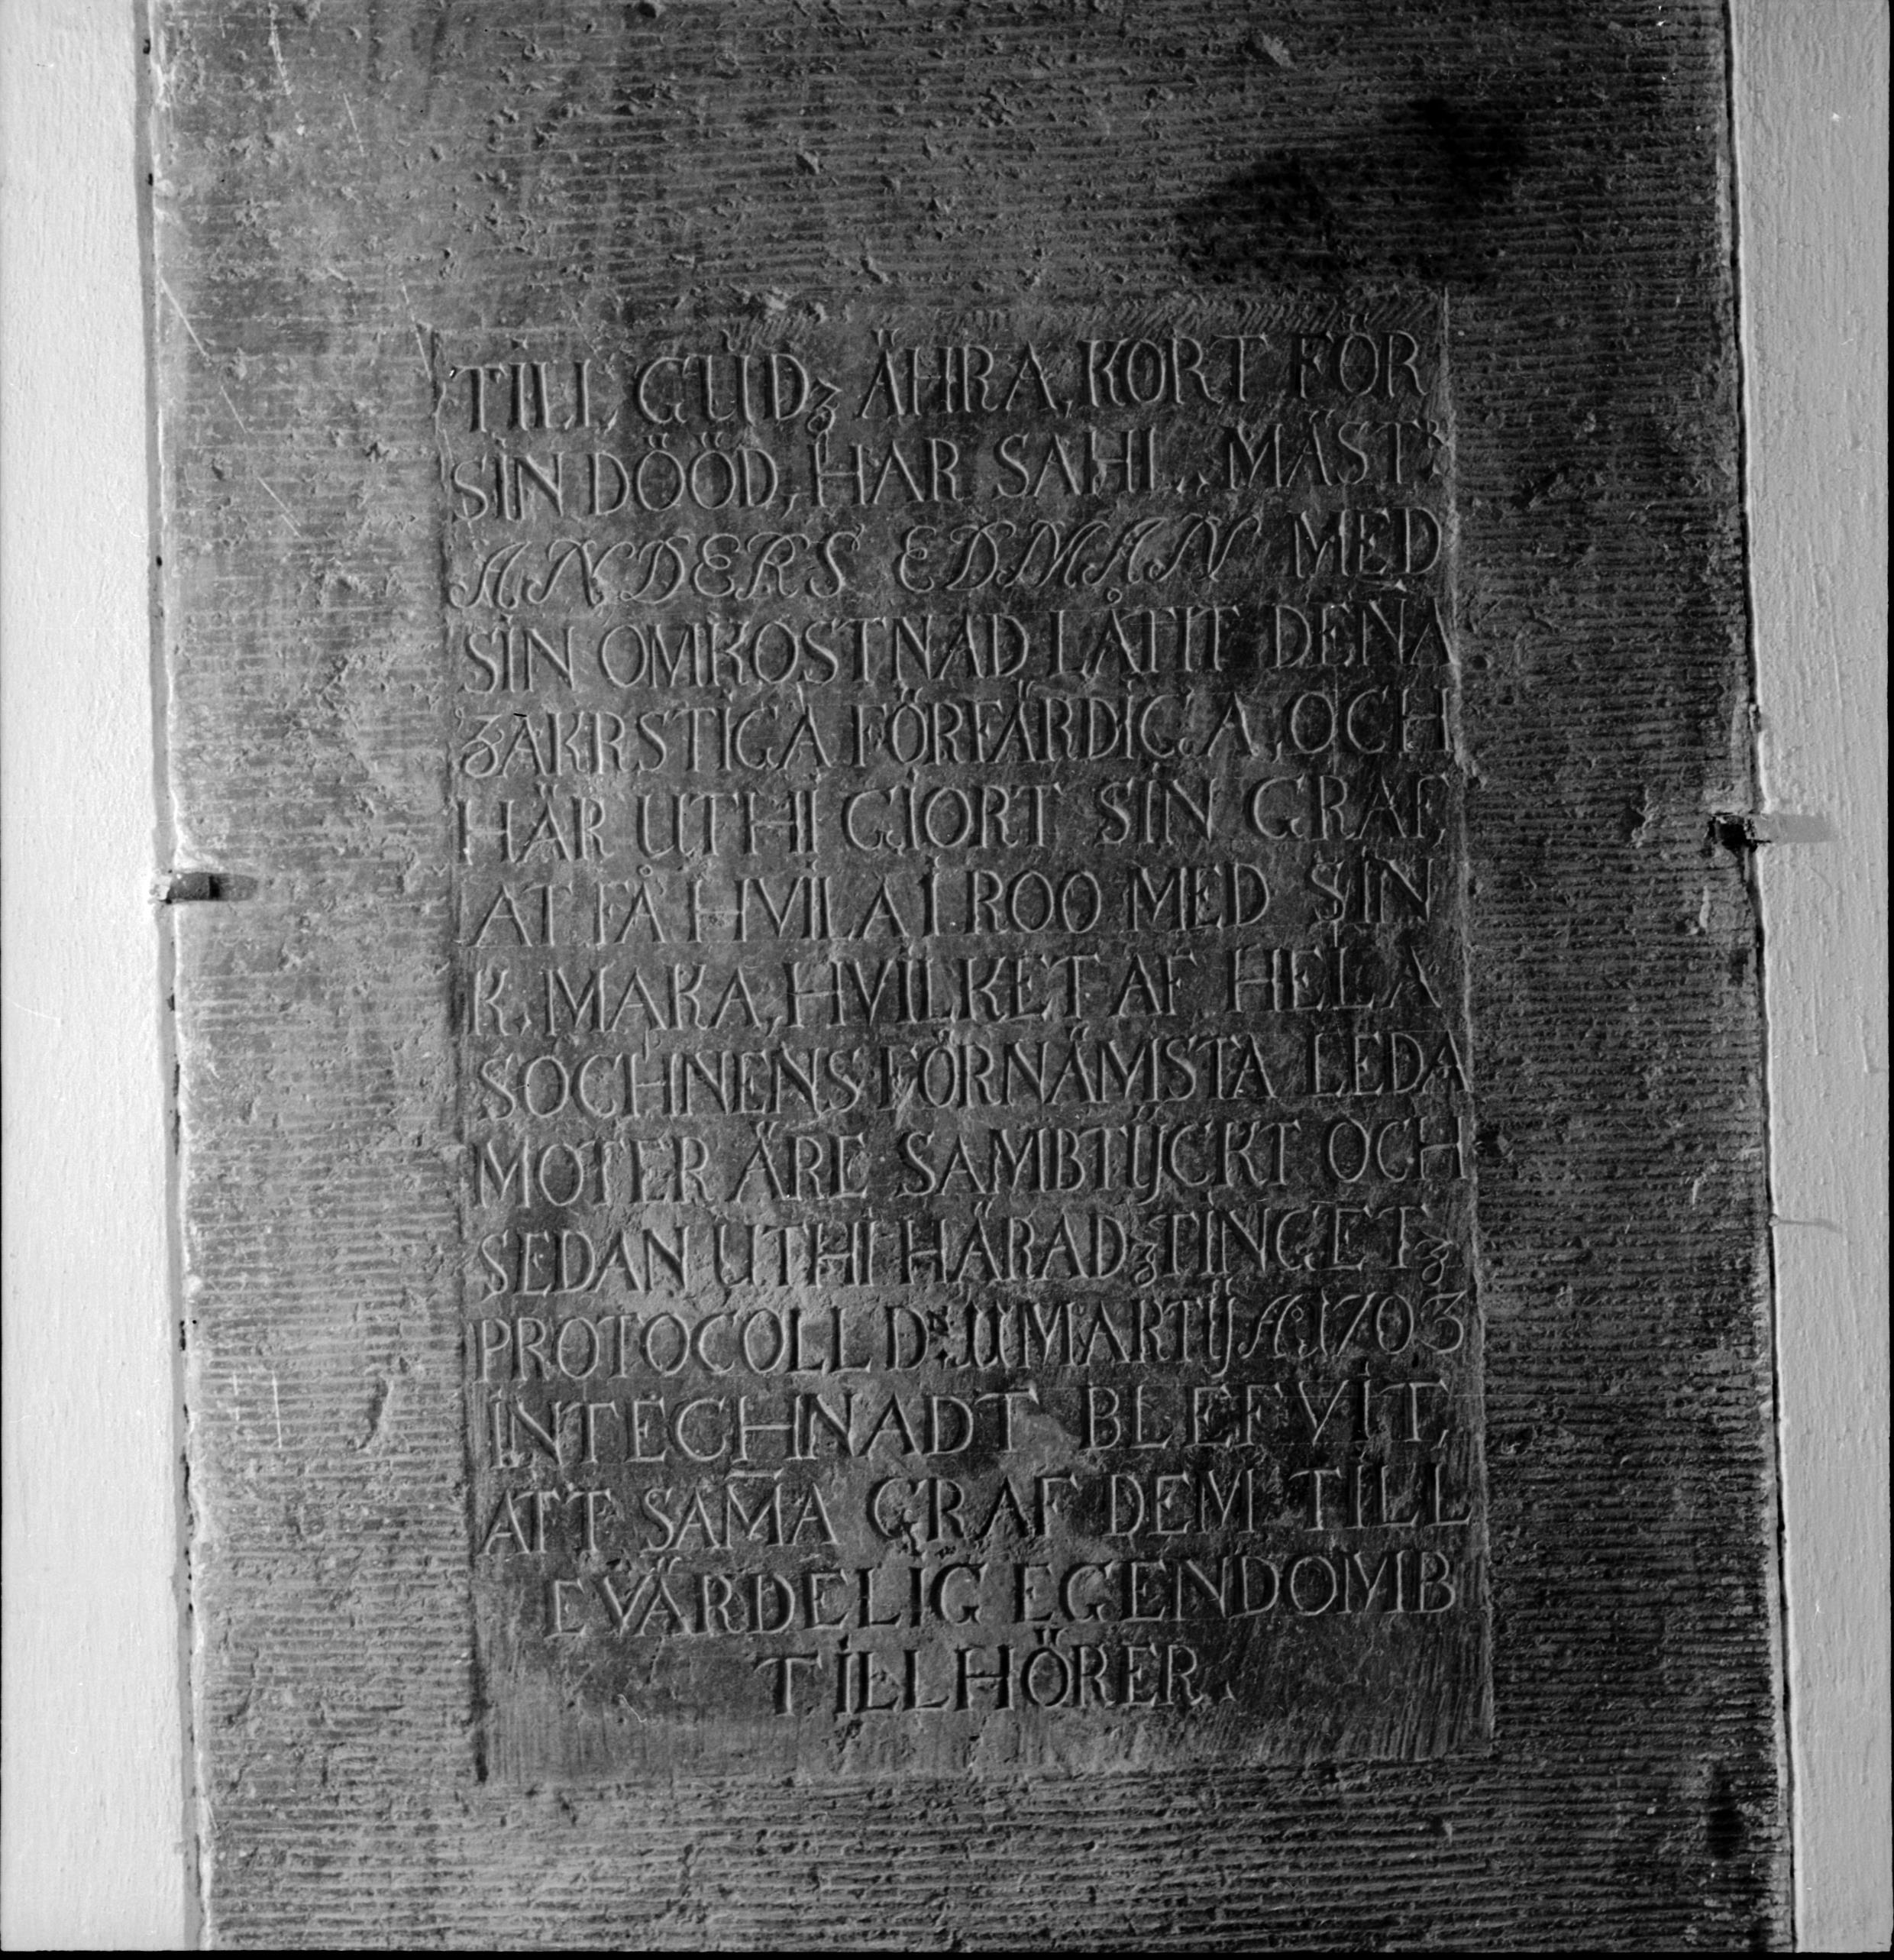 TILL GUDz ÄHRA, KORT FÖR
SIN DÖÖD, HAR SAHL. MÄST:R
ANDERS EDMAN MED
SIN OMKOSTNAD LÅTIT DEÑA
ZAKRSTIGA FÖRFÄRDIGA, OCH
HÄR UTHI GIORT SIN GRAF,
AT FÅ HVILA I ROO MED SIN
K. MAKA, HVILKET AF HELA
SOCHNENS FÖRNÄMSTA LEDA
MOTER ÄRE SAMBTIJCKT OCH
SEDAN UTHI HÄRADz TINGETz
PROTOCOLL D:N 11 MARTIJ A:o 1703
INTECHNADT BLEFVIT,
ATT SAM̄A GRAF DEM TILL
EVÄRDELIG EGENDOMB
TILLHÖRER.